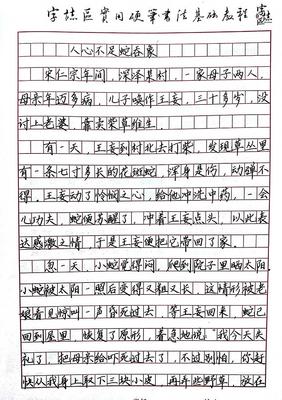 字越区实用硬笔书法基础教程
人心不足蛇吞象
宋仁宗年间,深泽某村,一家母子两人,
母亲年迈多病,儿子唤作王妄,三十多岁,没
讨上老婆,靠卖柴草维生。
有一天,王妄到村北去打柴,发现草丛里
有一条七寸多长的花斑蛇,浑身是伤,动弹不
得。王妄动了怜悯之心,给他冲洗中药,一会
儿功夫,蛇便苏醒了,冲着王妄点头,以此表
达感激之情,于是王妄便把它带回了家。
忽一天,小蛇觉得闷,爬到院子里晒太阳,
小蛇被太阳一照后变得又粗又长,这情形被老
娘看见惊叫一声昏死过去,等王妄回来,蛇已
回到屋里,恢复了原形,着急地说:"我今天失
礼了,把母亲给吓死过去了,不过别怕,你赶
快从我身上取下三块小皮,再弄些野草,放在